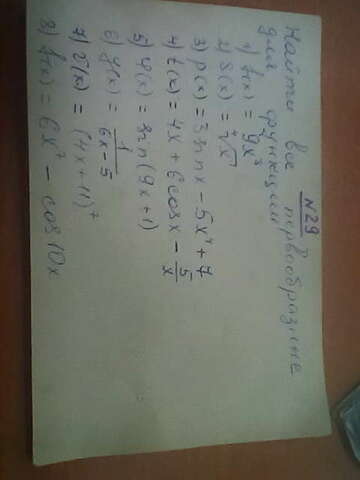 №29
Найти все первообразные
для функции
1) f(x) = 9x⁸
2) s(x) = ⁴√x
3) p(x) = 3sinx - 5x⁴ + 7
4) t(x) = 4x + 6cosx - 5/x
5) φ(x) = sin(9x+1)
6) y(x) = 1/(6x-5)
7) v(x) = (4x+11)⁷
8) f(x) = 6x⁷ - cos10x